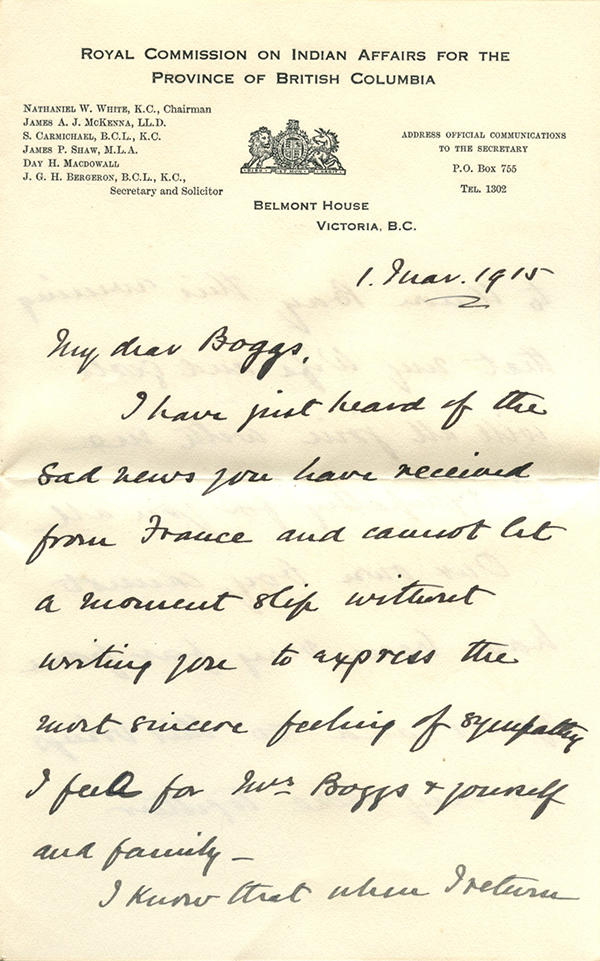 ROYAL COMMISSION ON INDIAN AFFAIRS FOR THE
PROVINCE OF BRITISH COLUMBIA
NATHANIEL W. WHITE, K.C., Chairman
JAMES A. J. MCKENNA, LL.D.
S. CARMICHAEL, B.C.L., K.C.
JAMES P. SHAW, M.L.A.
DAY H. MACDOWALL
J. G. H. BERGERON, B.C.L., K.C.,
Secretary and Solicitor
ADDRESS OFFICIAL COMMUNICATIONS
TO THE SECRETARY
P.O. BOX 755
TEL. 1302
BELMONT HOUSE
VICTORIA, B.C.
1. Mar. 1915
My dear Boggs,
I have just heard of the
sad news you have received
from France and cannot let
a moment slip without
writing you to express the
most sincere feeling of sympathy
I feel for Mrs Boggs & yourself
and family –
I know that when I return